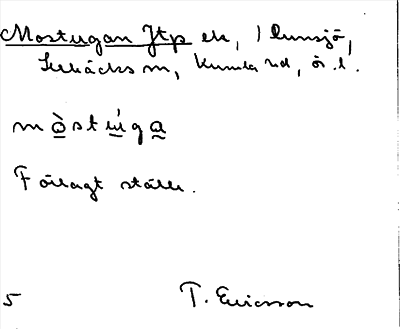 Mostugan Jtp ek, 1 Runsjö,
Lerbäcks sn, Kumla hd, ör. l.
mòstúga
Förlagt ställe.
5
T. Ericsson